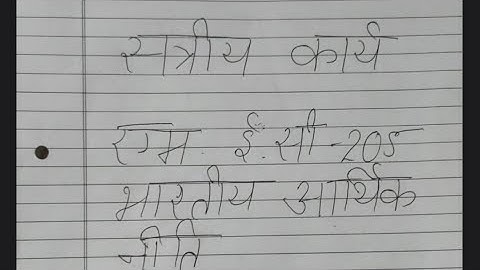 सत्रीय कार्य
एम. ई. सी -205
भारतीय आर्थिक
नीति